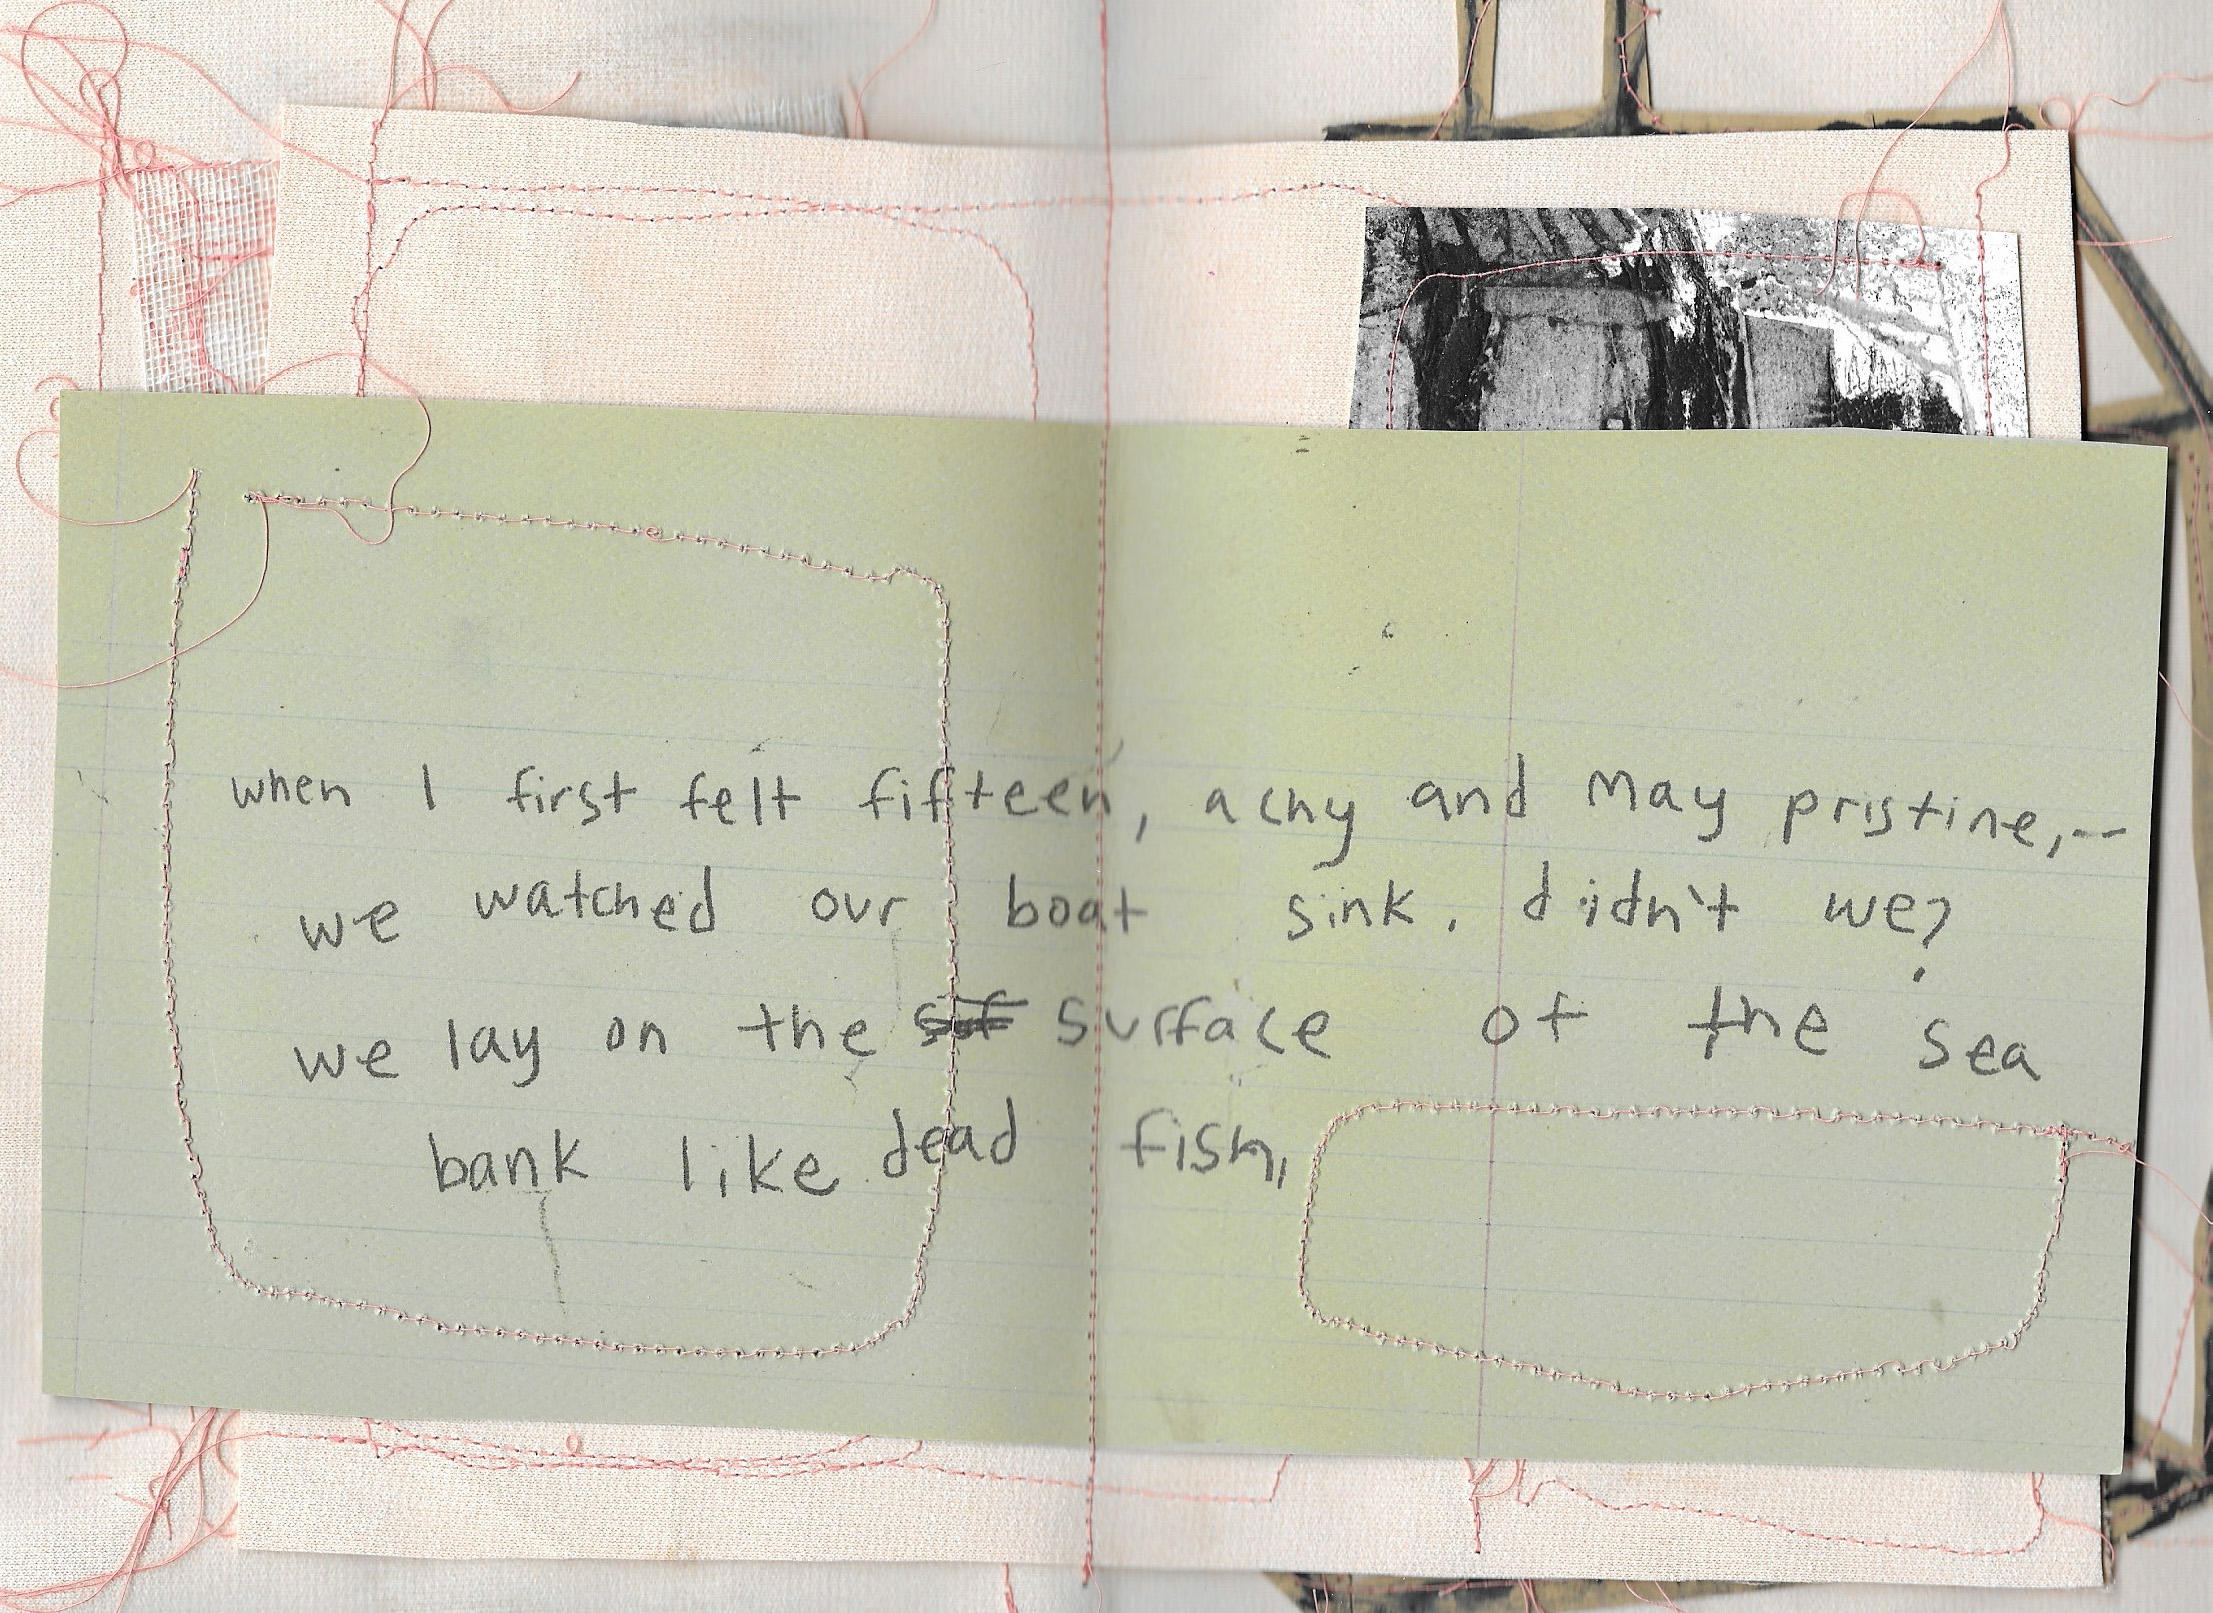 when I first felt fifteen, achy and May pristine,--
we watched our boat sink. didn't we?
we lay on the surface of the sea
bank like dead fish,